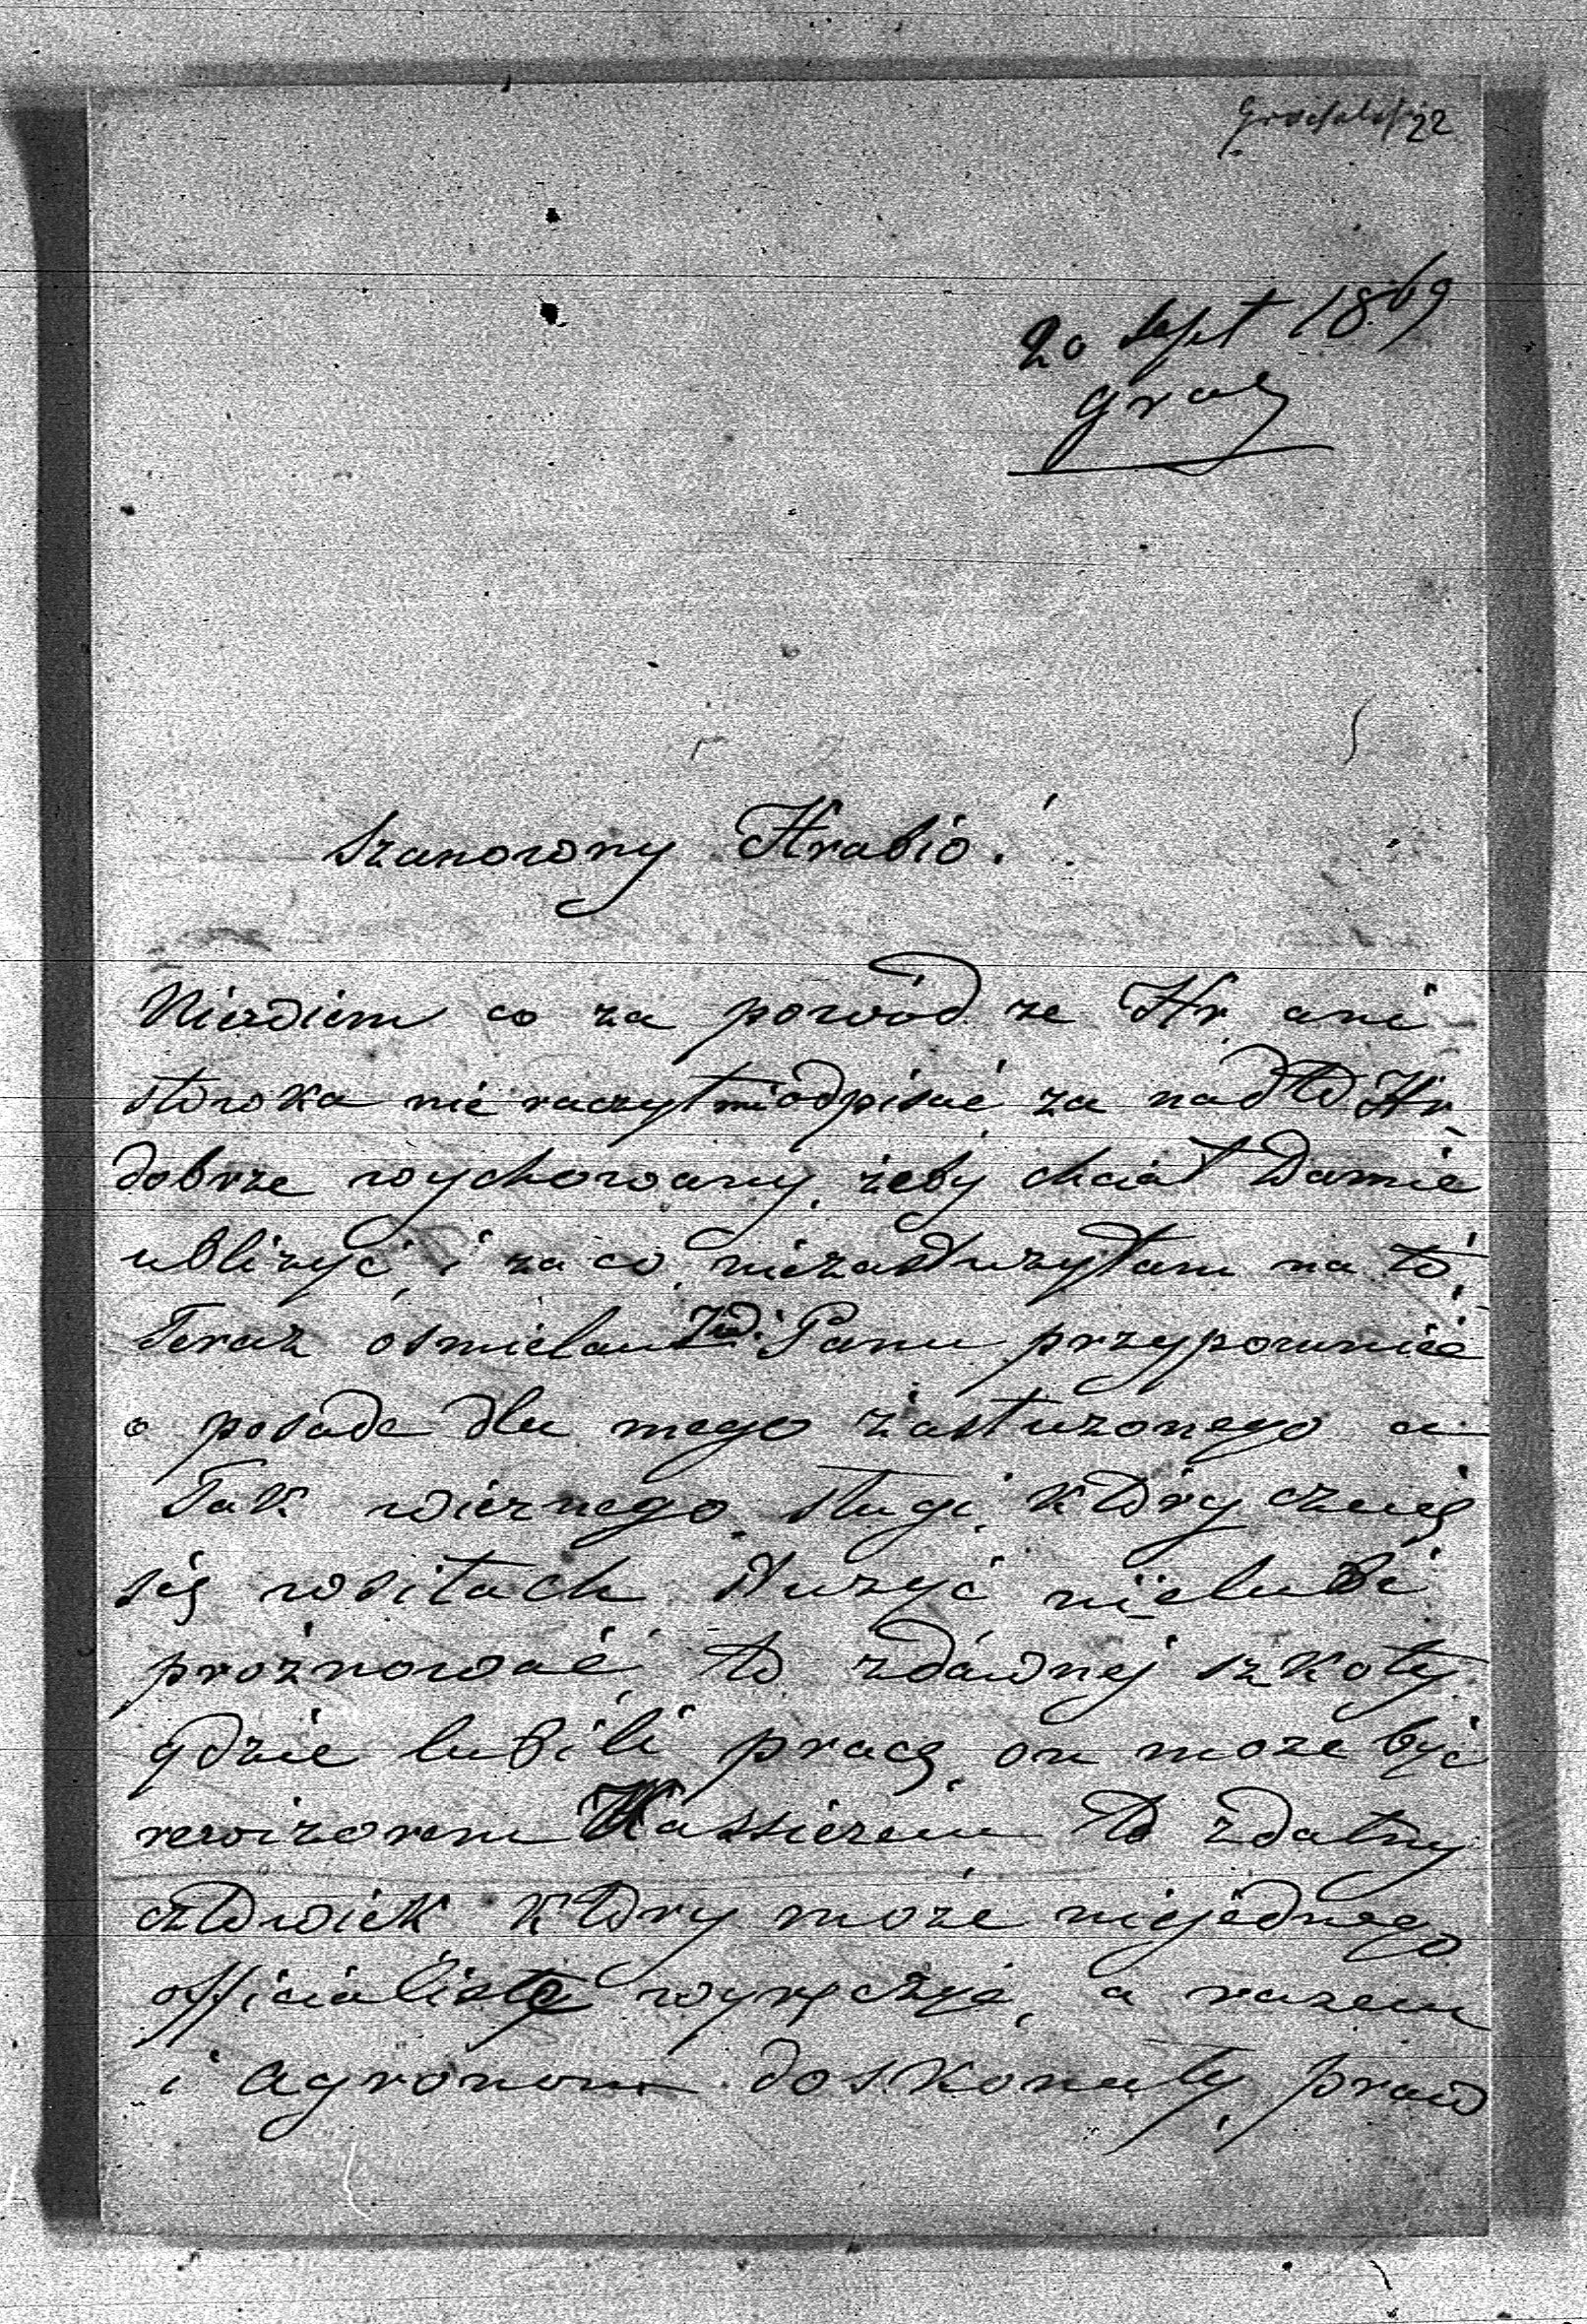 22
20 Sept 1869
Graz
Szanowny Hrabio!
Niewiem co za powód ze Hr ani
słowka nie raczył mi odpisać za nadto Hr
dobrze wychowany, żeby chciał Damie
ubliżyć, i za co, niezasłużyłam na to,
Teraz ośmielam Panu przypomnieć
o posade dla mego zasłużonego a
Tak wiernego sługi, który czując
się wsiłach służyć nielubi
prożnować, to zdawnej szkoły
gdzie lubili pracę, on może być
rewizorem Kassierem to zdatny
człowiek który może niejednego
officialistę wyręczyć, a razem
i agronom doskonały, praw